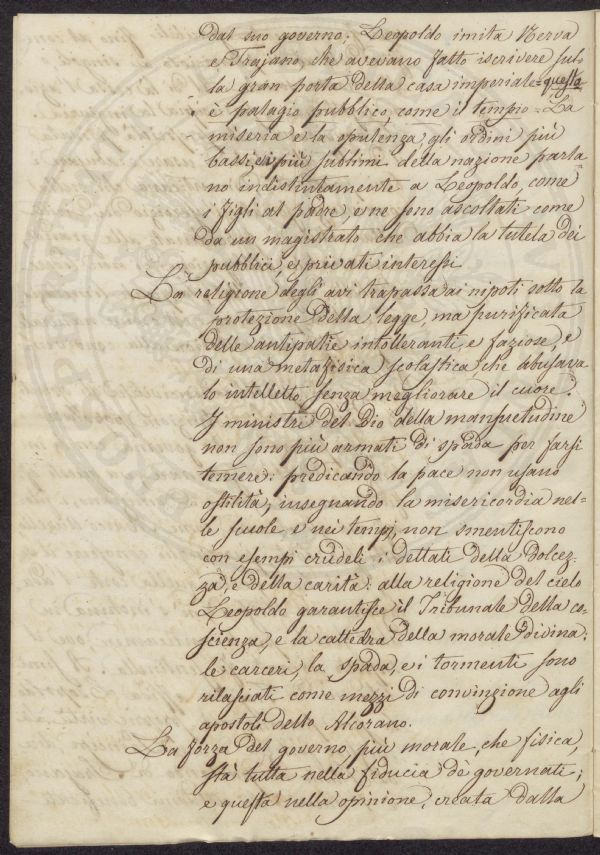 dal suo governo. Leopoldo imita Nerva
e Trajano, che avevano fatto iscrivere sul-
la gran porta della casa imperiale = questo
è palagio pubblico, come il tempio = La
miseria e la opulenza, gli ordini più
bassi, e i più sublimi della nazione parla-
no indistintamente a Leopoldo, come
i figli al padre, e ne sono ascoltati come
da un magistrato che abbia la tutela dei
pubblici, e privati interessi.
La religione degli avi trapassa ai nipoti sotto la
protezione della legge ma purificata
delle antipatie intolleranti, e faziose, e
di una metafisica scolastica che abusava
lo intelletto, senza megliorare il cuore.
I ministri del Dio della mansuetudine
non sono più armati di spada per farsi
temere: predicando la pace non usano
ostilità, insegnando la misericordia nel-
le scuole, e nei tempj, non smentiscono
con esempi crudeli i dettati della dolcez-
za, e della carità: alla religione del cielo
Leopoldo garantisce il Tribunale della co-
scienza, e la cattedra della morale divina:
le carceri, la spada, e i tormenti sono
rilasciati come mezzi di convinzione agli
apostoli dello Alcorano.
La forza del governo più morale, che fisica,
sta tutta nella fiducia de' governati;
e questa nella opinione, creata dalla